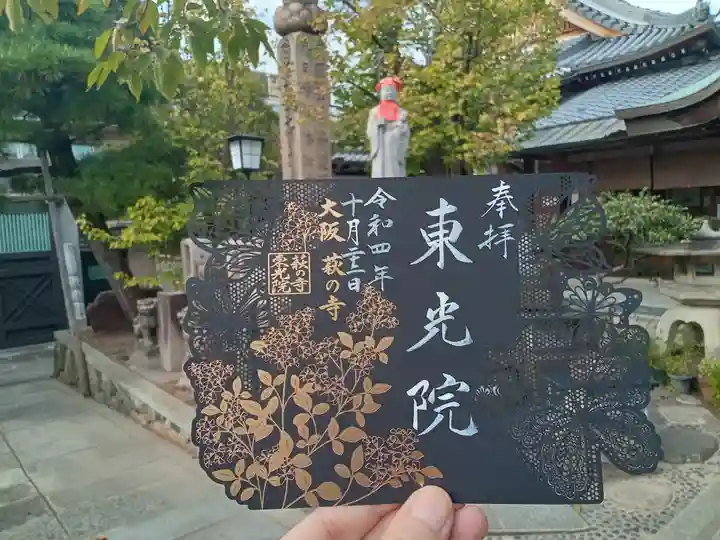 奉拝
東光院
令和四年
十月二十二日
大阪 萩の寺
萩の寺
東光院